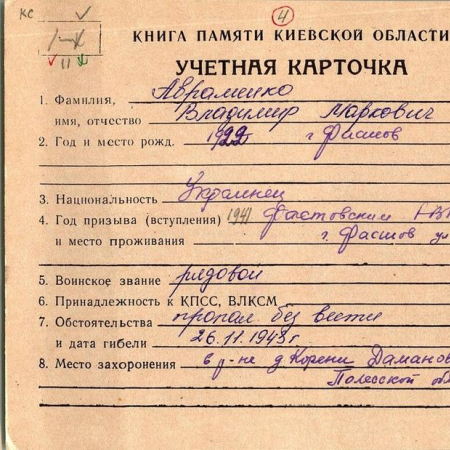 КС
4
I-X
II
КНИГА ПАМЯТИ КИЕВСКОЙ ОБЛАСТИ
УЧЕТНАЯ КАРТОЧКА
1. Фамилия, Авраменко
имя, отчество Владимир Маркович
2. Год и место рожд. 1922 г Фастов
3. Национальность Украинец
4. Год призыва (вступления) 1941 Фастовским РВ
и место проживания г. Фастов ул
5. Воинское звание рядовой
6. Принадлежность к КПСС, ВЛКСМ
7. Обстоятельства пропал без вести
и дата гибели 26.11.1943г
8. Место захоронения в р-не д Корени Даманов
Полесской обл